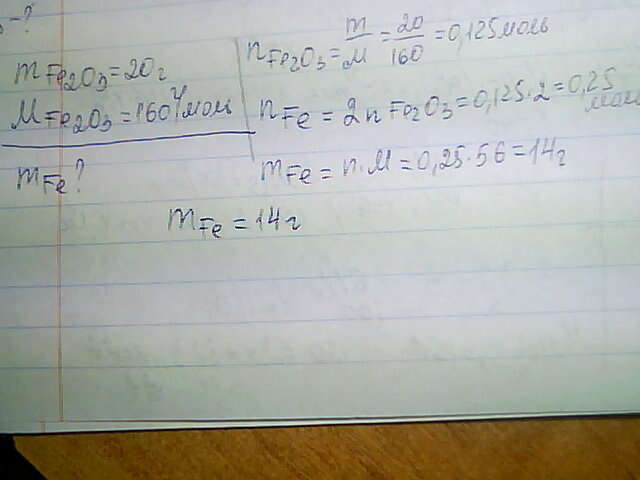 -?
m Fe₂O₃ = 20г
M Fe₂O₃ = 160 г/моль
m Fe?
n Fe₂O₃ = m/M = 20/160 = 0,125 моль
n Fe = 2n Fe₂O₃ = 0,125·2 = 0,25 моль
m Fe = n·M = 0,25·56 = 14г
m Fe = 14г